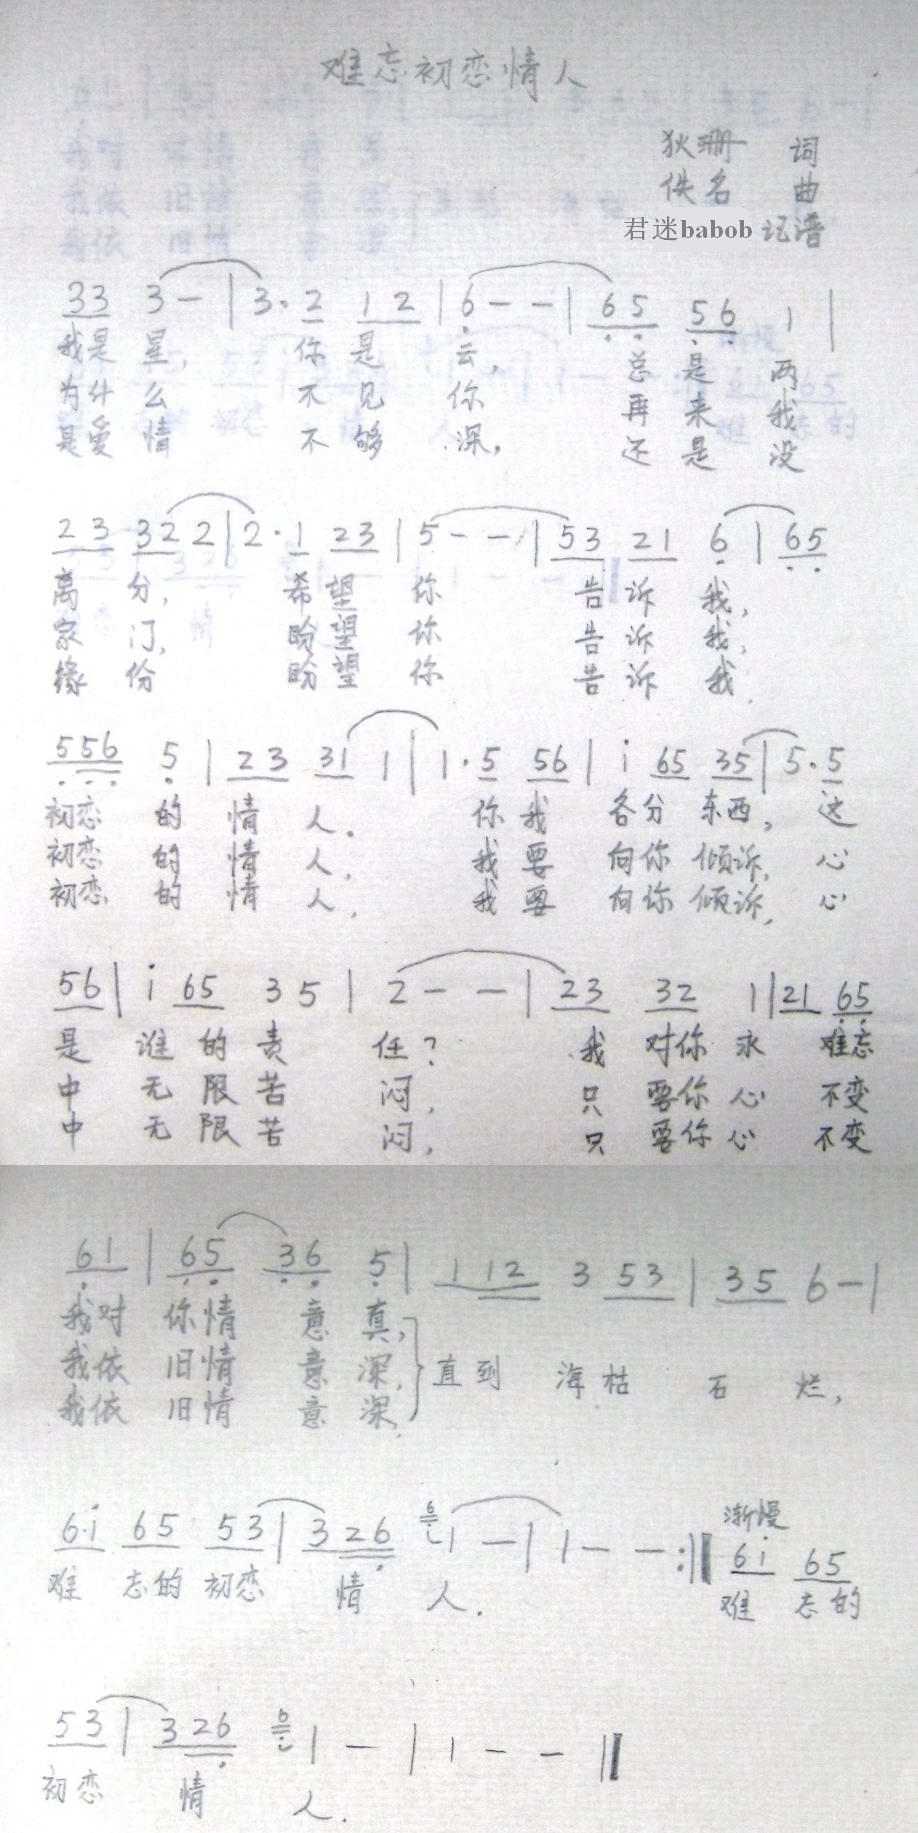 难忘初恋情人
狄珊 词
佚名 曲
君迷babob 记谱
33 3 - | 3. 2 12 | 6 - - | 65 56 1 |
我是 星, 你 是 云, 总 是 两
为什 么 不 见 你 再 来 我
是爱 情 不 够 深, 还 是 没
23 32 2 | 2. 1 23 | 5 - - | 53 21 6 | 65
离 分, 希 望 你 告 诉 我,
家 门, 盼 望 你 告 诉 我,
缘 份 盼 望 你 告 诉 我
556 5 | 23 31 1 | 1. 5 56 | i 65 35 | 5. 5
初恋 的 情 人. 你 我 各分 东西, 这
初恋 的 情 人, 我 要 向你 倾诉, 心
初恋 的 情 人, 我 要 向你 倾诉, 心
56 | i 65 3 5 | 2 - - | 23 32 1 || 21 65
是 谁 的 责 任? 我 对你 永 难忘
中 无 限 苦 闷, 只 要你 心 不变
中 无 限 苦 闷, 只 要你 心 不变
61 | 65 36 5 | 1 12 3 53 | 35 6 - |
我对 你情 意 真,
我依 旧情 意 深, 直到 海枯 石 烂,
我依 旧情 意 深,
渐慢
6.i 65 53 | 3 26 6 1 - | 1 - - :|| 6i 65
难 忘的 初恋 情 人. 难 忘的
53 | 3 26 6 1 - | 1 - - ||
初恋 情 人.